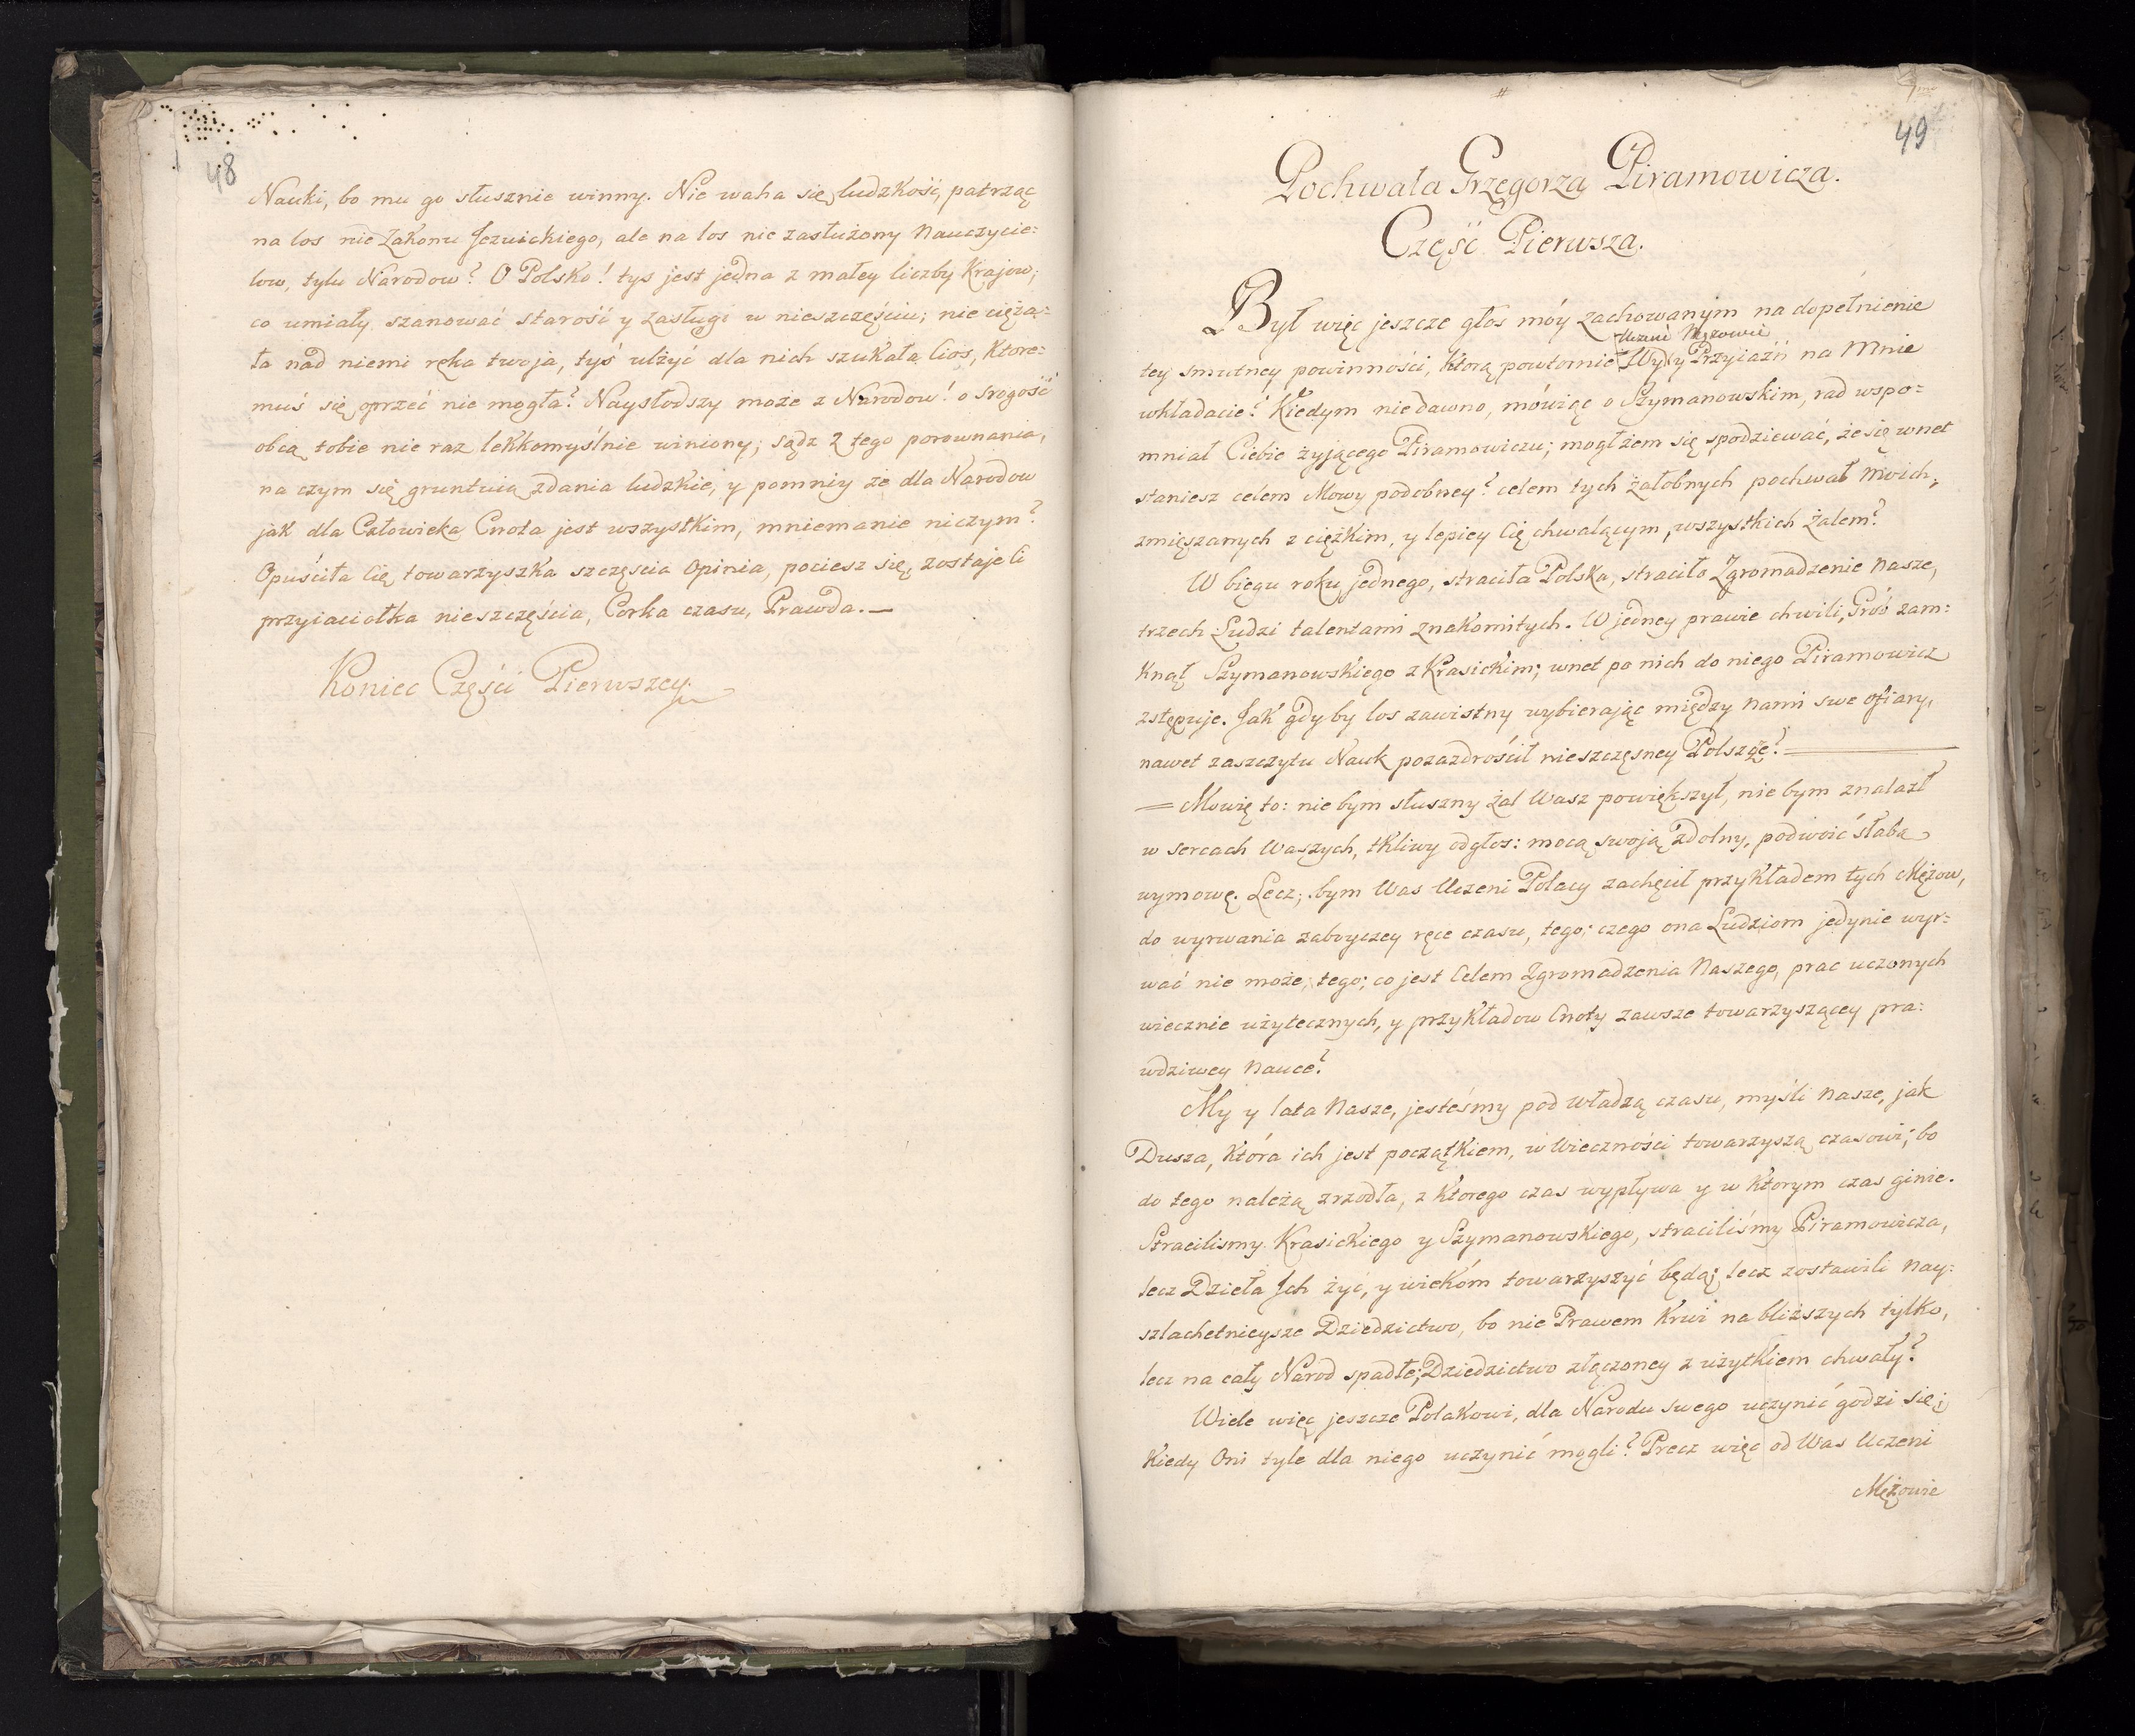 48
Nauki, bo mu go słusznie winny. Nie waha się ludzkość, patrząc
na los nie Zakonu Jezuickiego, ale na los nie zasłużony Nauczycie=
low, tylu Narodow? O Polsko! tys jest jedna z małey liczby Krajow;
co umiały szanować starość y zasługi w nieszczęściu; nie cięża=
ła nad niemi ręka twoja, tyś ulżyć dla nich szukała Cios, Ktore=
muś się oprzeć nie mogła? Naysłodszy moze z Narodow! o srogość
obcą tobie nie raz lekkomyślnie winiony; sądz z tego porownania,
na czym się gruntuią zdania ludzkie, y pomniy że dla Narodow
jak dla Człowieka Cnota jest wszystkim, mniemanie niczym?
Opuściła Cię towarzyszka szczęscia Opinia, pociesz się, zostaje Ci
przyiaciołka nieszczęścia, Corka czasu, Prawda.—
Koniec Części Pierwszey.
49
Pochwała Grzegorza Piramowicza.
Część Pierwsza.
Był więc jeszcze głos móy zachowanym na dopełnienie
Uczeni Mężowie
tey smutney powinności, Ktorą powtornie Wy y Przyiaźń na Mnie
wkładacie? Kiedym nie dawno, mówiąc o Szymanowskim, rad wspo=
mniał Ciebie żyjącego Piramowiczu; mogł żem się spodziewać, że się wnet
staniesz celem Mowy podobney? celem tych żałobnych pochwał Moich,
zmięszanych z ciężkim, y lepiey Cię chwalącym, wszystkich Żalem?
W biegu roku jednego, straciła Polska, straciło Zgromadzenie Nasze,
trzech Ludzi talentami znakomitych. W jedney prawie chwili, Grób zam=
Knął Szymanowskiego z Krasickim; wnet po nich do niego Piramowicz
zstępuje. Jak gdy by los zawistny wybierając między Nami swe ofiary,
nawet zaszczytu Nauk pozazdrościł nieszczęsney Polszcze?
= Mowię to: nie bym słuszny żal Wasz powiększył, nie bym znalazł
w sercach Waszych, tkliwy odgłos: mocą swoją zdolny, podwoić słabą
wymowę. Lecz; bym Was Uczeni Polacy zachęcił przykładem tych Mężow,
do wyrwania zaboyczey ręce czasu, tego; czego ona Ludziom jedynie wyr=
wać nie może; tego; co jest Celem Zgromadzenia Naszego, prac uczonych
wiecznie użytecznych, y przykładow Cnoty zawsze towarzyszącey pra=
wdziwey Nauce?
My y lata Nasze, jesteśmy pod władzą czasu, myśli Nasze, jak
Dusza, która ich jest początkiem, w Wieczności towarzyszą czasowi; bo
do tego należą zrzodła, z Ktorego czas wypływa y w Ktorym czas ginie.
Stracilismy Krasickiego y Szymanowskiego, straciliśmy Piramowicza,
lecz Dzieła Jch żyć, y wiekóm towarzyszyć będą; lecz zostawili Nay=
szlachetnieysze Dziedzictwo, bo nie Prawem Krwi na bliższych tylko,
lecz na cały Narod spadłe; Dziedzictwo złączoney z użytkiem chwały?
Wiele więc jeszcze Polakowi, dla Narodu swego uczynić godzi się;
Kiedy Oni tyle dla niego uczynić mogli? Precz więc od Was Uczeni
Mężowie